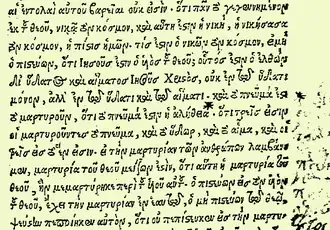 αἱ ἐντολαὶ αὐτοῦ βαρεῖαι οὐκ εἰσίν. ὅτι πᾶν τὸ γεγεννημένον
ἐκ τοῦ θεοῦ, νικᾷ τὸν κόσμον, καὶ αὕτη ἐστὶν ἡ νίκη, ἡ νικήσασα
τὸν κόσμον, ἡ πίστις ἡμῶν. τίς ἐστιν ὁ νικῶν τὸν κόσμον, εἰ μὴ
ὁ πιστεύων, ὅτι ἰησοῦς ἐστὶν ὁ υἱὸς τοῦ θεοῦ; οὗτός ἐστιν ὁ ἐλθὼν
δι' ὕδατος καὶ αἵματος ἰησοῦς χριστὸς, οὐκ ἐν τῷ ὕδατι
μόνον, ἀλλ' ἐν τῷ ὕδατι καὶ αἵματι. καὶ τὸ πνεῦμά ἐστι
τὸ μαρτυροῦν, ὅτι τὸ πνεῦμά ἐστιν ἡ ἀλήθεια. ὅτι τρεῖς εἰσιν
οἱ μαρτυροῦντες τὸ πνεῦμα, καὶ τὸ ὕδωρ, καὶ τὸ αἷμα, καὶ οἱ
τρεῖς εἰς τὸ ἕν εἰσιν. εἰ τὴν μαρτυρίαν τῶν ἀνθρώπων λαμβάνο
μεν, μαρτυρία τοῦ θεοῦ μείζων ἐστίν, ὅτι αὕτη ἐστὶν ἡ μαρτυρία τοῦ
θεοῦ, ἣν μεμαρτύρηκε περὶ τοῦ υἱοῦ αὐτοῦ. ὁ πιστεύων εἰς τὸν υἱὸν
τοῦ θεοῦ, ἔχει τὴν μαρτυρίαν ἐν ἑαυτῷ, ὁ μὴ πιστεύων τῷ θεῷ
ψεύστην πεποίηκεν αὐτὸν, ὅτι οὐ πεπίστευκεν εἰς τὴν μαρτυ-